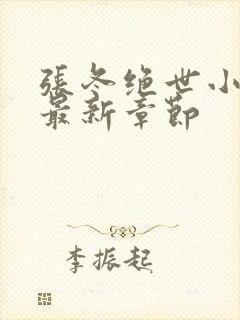 張冬绝世小
最新章節
李振起